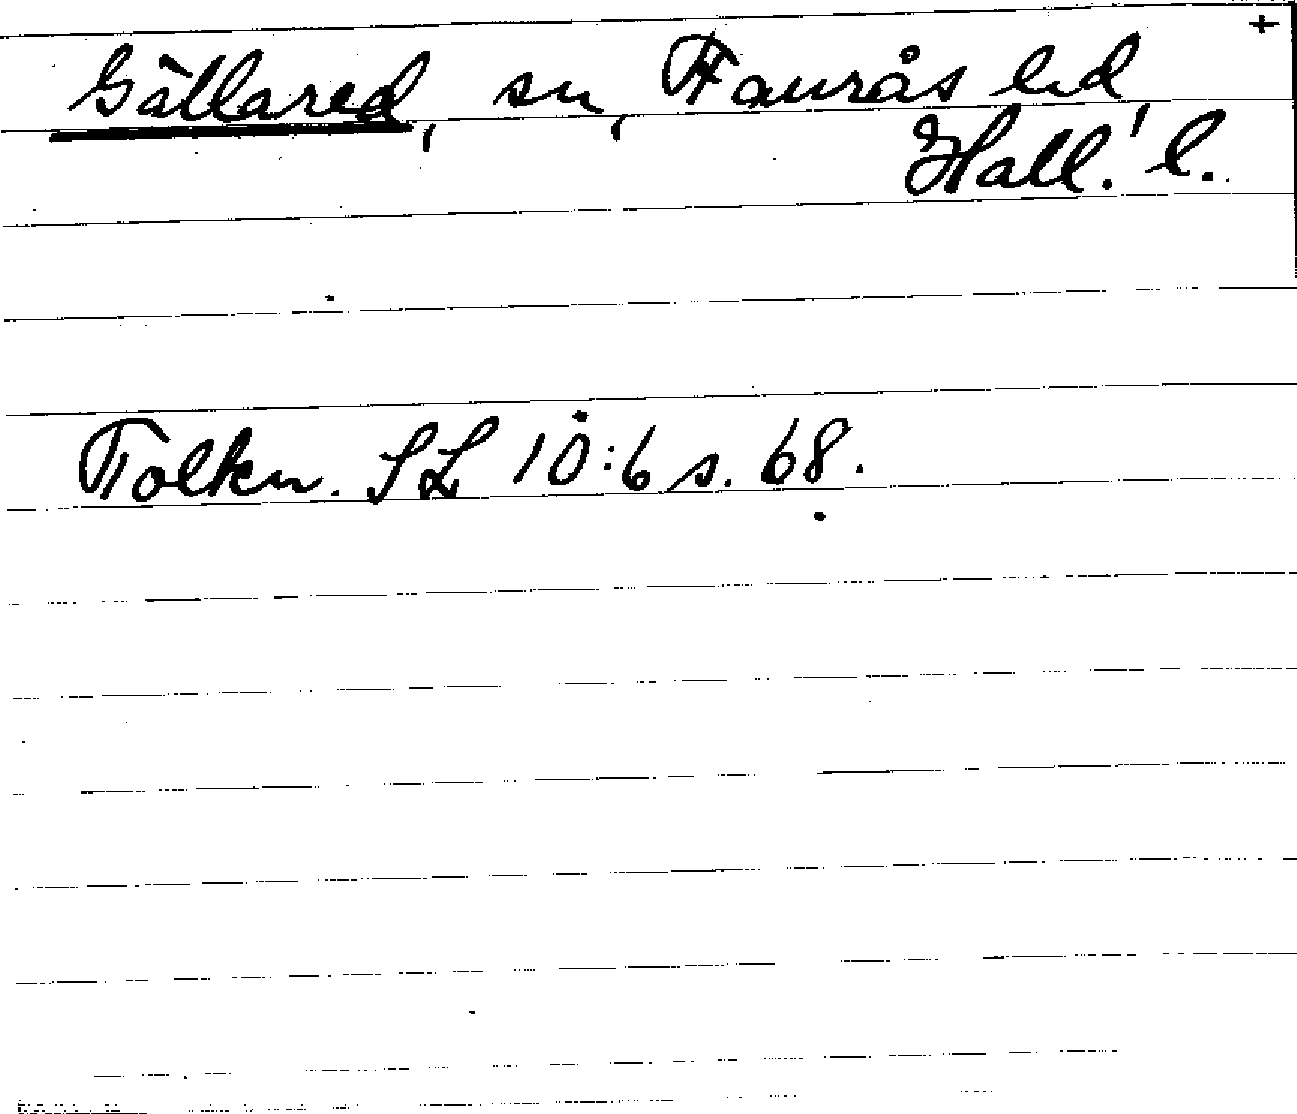 +
Gällared, sn, Faurås hd,
Hall. l.
Tolkn. SL 10:6 s. 68.